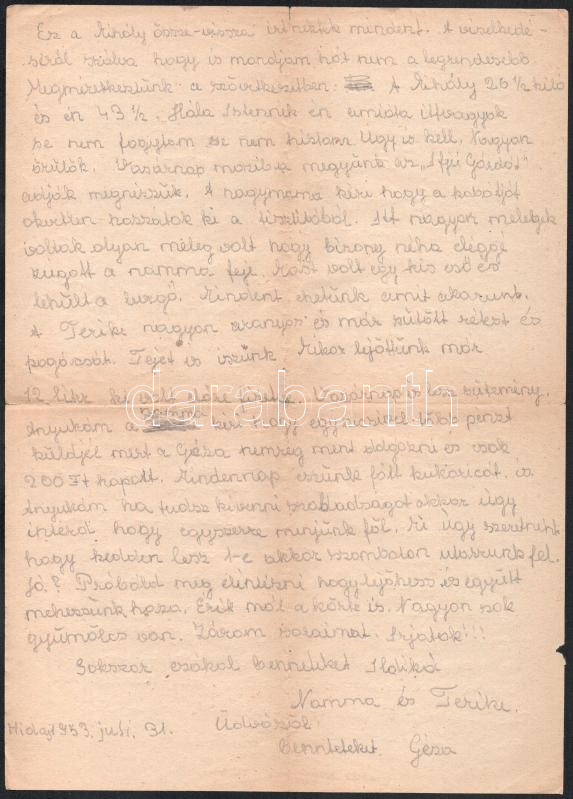 Ez a Mihály össze-vissza irt nektek mindent. A viselkedé-
séről szólva hogy is mondjam hát nem a legrendesebb
Megméretkeztünk a szövetkezetben. A Mihály 26 1/2 kiló
és én 43 1/2. Hála Istennek én amióta itt vagyok
se nem fogytam se nem híztam Úgy is kell. Nagyon
örülök. Vasárnap moziba megyünk az „Ifjú Gárdát"
adják megnézzük. A nagymama kéri hogy a kabátját
okvetlen hozzátok ki a tisztítóból. Itt nagyon melegek
voltak olyan meleg volt hogy bizony néha eléggé
zugott a namma feje. Most volt egy kis eső és
lehült a levegő. Mindent ehetünk amit akarunk.
A Terike nagyon aranyos és már sütött kekszt és
pogácsát. Tejet is iszunk Mikor lejöttünk már
12 liter Vasárnap is lesz sütemény.
Anyukám a namma kéri hogy egy kicsivel több pénzt
küldjél mert a Géza nemrég ment dolgozni és csak
200 Ft kapott. Mindennap eszünk főtt kukoricát is
Anyukám ha tudsz kivenni szabadságot akkor úgy
intézd hogy egyszerre menjünk föl. Mi úgy szeretnénk
hogy kedden lesz 1-e akkor szombaton utazzunk fel.
Jó? Próbáld meg elintézni hogy lejöhess és együtt
mehessünk haza. Érik mál a körte is. Nagyon sok
gyümölcs van. Zárom soraimat. Irjatok!!!
Sokszor csókol benneteket Ildikó
Namma és Terike.
Hidas 1953. juli. 31. Üdvözöl
benneteket Géza
darabanth